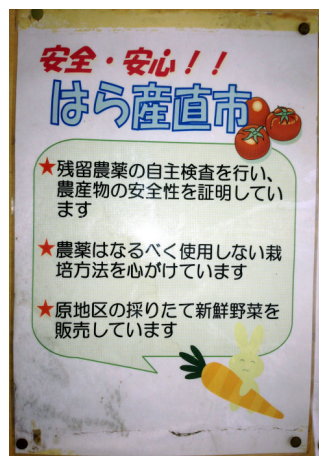 安全・安心！！
はら産直市
★残留農薬の自主検査を行い、
農産物の安全性を証明してい
ます
★農薬はなるべく使用しない栽
培方法を心がけています
★原地区の採りたて新鮮野菜を
販売しています